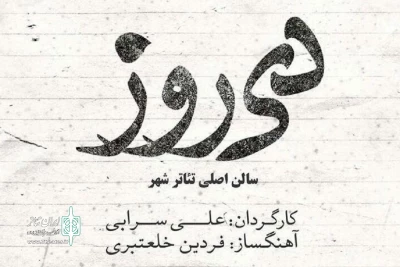 دی روز
سالن اصلی تئاتر شهر
کارگردان: علی سرابی
آهنگساز: فردین خلعتبری